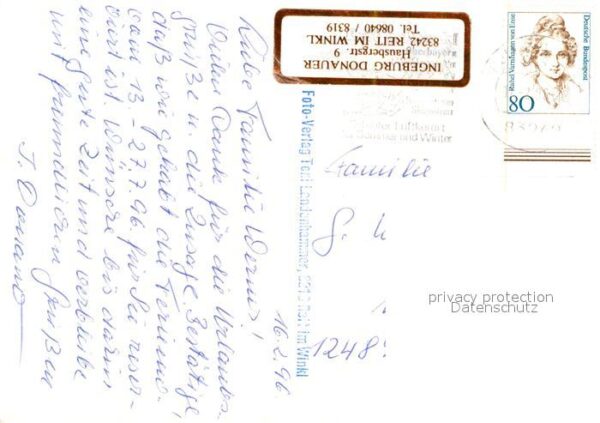 16.2.96.
Liebe Familie Werner!
Vielen Dank für die Urlaubs-
grüße u. die Zusage. Bestätige,
daß wie gehabt die Termine
vom 13. - 27.7.96 für Sie reser-
viert ist. Wünsche bis dahin
eine gute Zeit und verbleibe
mit freundlichen Grüßen
I. Donauer
Foto-Verlag
Reit im Winkl
INGEBORG DONAUER
Hausbergstr. 9
83242 REIT IM WINKL
Tel. 08640 / 8319
Luftkurort
Sommer und Winter
Deutsche Bundespost
Rahel Varnhagen von Ense
80
Familie
1248
privacy protection
Datenschutz